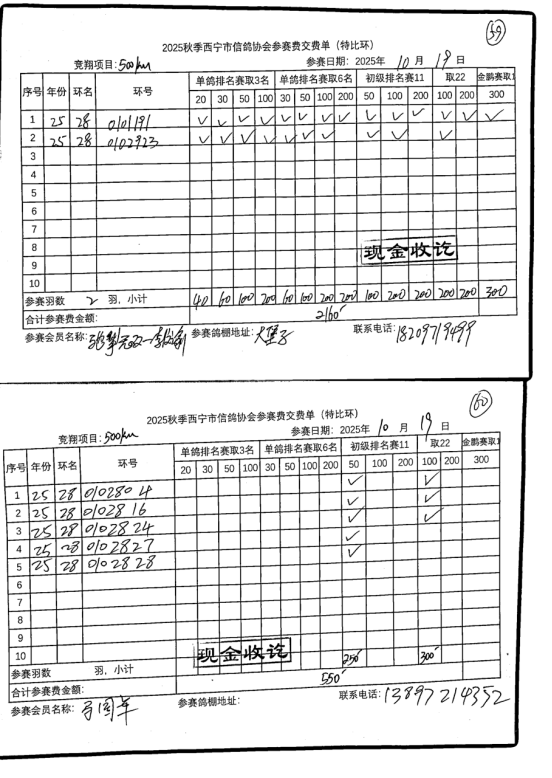 59
2025秋季西宁市信鸽协会参赛费交费单（特比环）
竞翔项目：500km 参赛日期：2025年 10 月 19 日
序号 年份 环名 环号 单鸽排名赛取3名 单鸽排名赛取6名 初级排名赛11 取22 金鹏赛取1
20 30 50 100 30 50 100 200 50 100 200 100 200 300
1 25 28 0101191 ✓ ✓ ✓ ✓ ✓ ✓ ✓ ✓ ✓ ✓ ✓ ✓ ✓ ✓
2 25 28 0102923 ✓ ✓ ✓ ✓ ✓ ✓ ✓ ✓ ✓ ✓
3
4
5
6
7
8
现金收讫
9
10
参赛羽数 2 羽，小计 40 60 100 200 60 100 200 200 100 200 200 200 200 300
合计参赛费金额： 2160
参赛会员名称： 参赛鸽棚地址：大堡子 联系电话：18209719499
60
2025秋季西宁市信鸽协会参赛费交费单（特比环）
竞翔项目：500km 参赛日期：2025年 10 月 19 日
序号 年份 环名 环号 单鸽排名赛取3名 单鸽排名赛取6名 初级排名赛11 取22 金鹏赛取1
20 30 50 100 30 50 100 200 50 100 200 100 200 300
1 25 28 0102804 ✓ ✓
2 25 28 0102816 ✓ ✓
3 25 28 0102824 ✓ ✓
4 25 28 0102827 ✓
5 25 28 0102828 ✓
6
7
8
9
10 现金收讫 250 300
参赛羽数 羽，小计
合计参赛费金额： 550
参赛会员名称：马国年 参赛鸽棚地址： 联系电话：13897214352